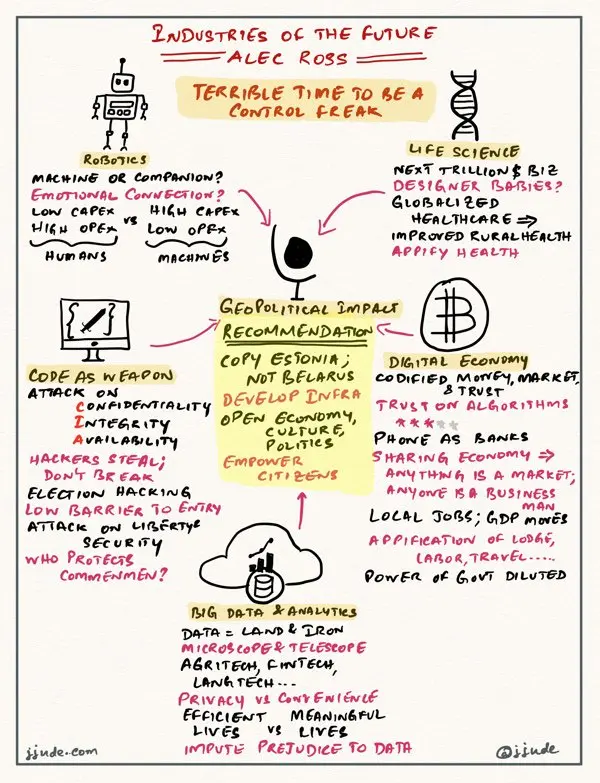 INDUSTRIES OF THE FUTURE
ALEC ROSS
TERRIBLE TIME TO BE A
CONTROL FREAK
ROBOTICS
MACHINE OR COMPANION?
EMOTIONAL CONNECTION?
LOW CAPEX VS HIGH CAPEX
HIGH OPEX LOW OPEX
HUMANS MACHINES
LIFE SCIENCE
NEXT TRILLION $ BIZ
DESIGNER BABIES?
GLOBALIZED
HEALTHCARE ⇒
IMPROVED RURAL HEALTH
APPIFY HEALTH
GEOPOLITICAL IMPACT
RECOMMENDATION
COPY ESTONIA;
NOT BELARUS
DEVELOP INFRA
OPEN ECONOMY,
CULTURE,
POLITICS
EMPOWER
CITIZENS
CODE AS WEAPON
ATTACK ON
CONFIDENTIALITY
INTEGRITY
AVAILABILITY
HACKERS STEAL;
DON'T BREAK
ELECTION HACKING
LOW BARRIER TO ENTRY
ATTACK ON LIBERTY &
SECURITY
WHO PROTECTS
COMMENMEN?
DIGITAL ECONOMY
CODIFIED MONEY, MARKET,
& TRUST
TRUST ON ALGORITHMS
*****
PHONE AS BANKS
SHARING ECONOMY ⇒
ANYTHING IS A MARKET;
ANYONE IS A BUSINESS
MAN
LOCAL JOBS; GDP MOVES
APPIFICATION OF LODGE,
LABOR, TRAVEL.....
POWER OF GOVT DILUTED
BIG DATA & ANALYTICS
DATA = LAND & IRON
MICROSCOPE & TELESCOPE
AGRITECH, FINTECH,
LANGTECH...
PRIVACY VS CONVENIENCE
EFFICIENT MEANINGFUL
LIVES VS LIVES
IMPUTE PREJUDICE TO DATA
jjude.com
@jjude